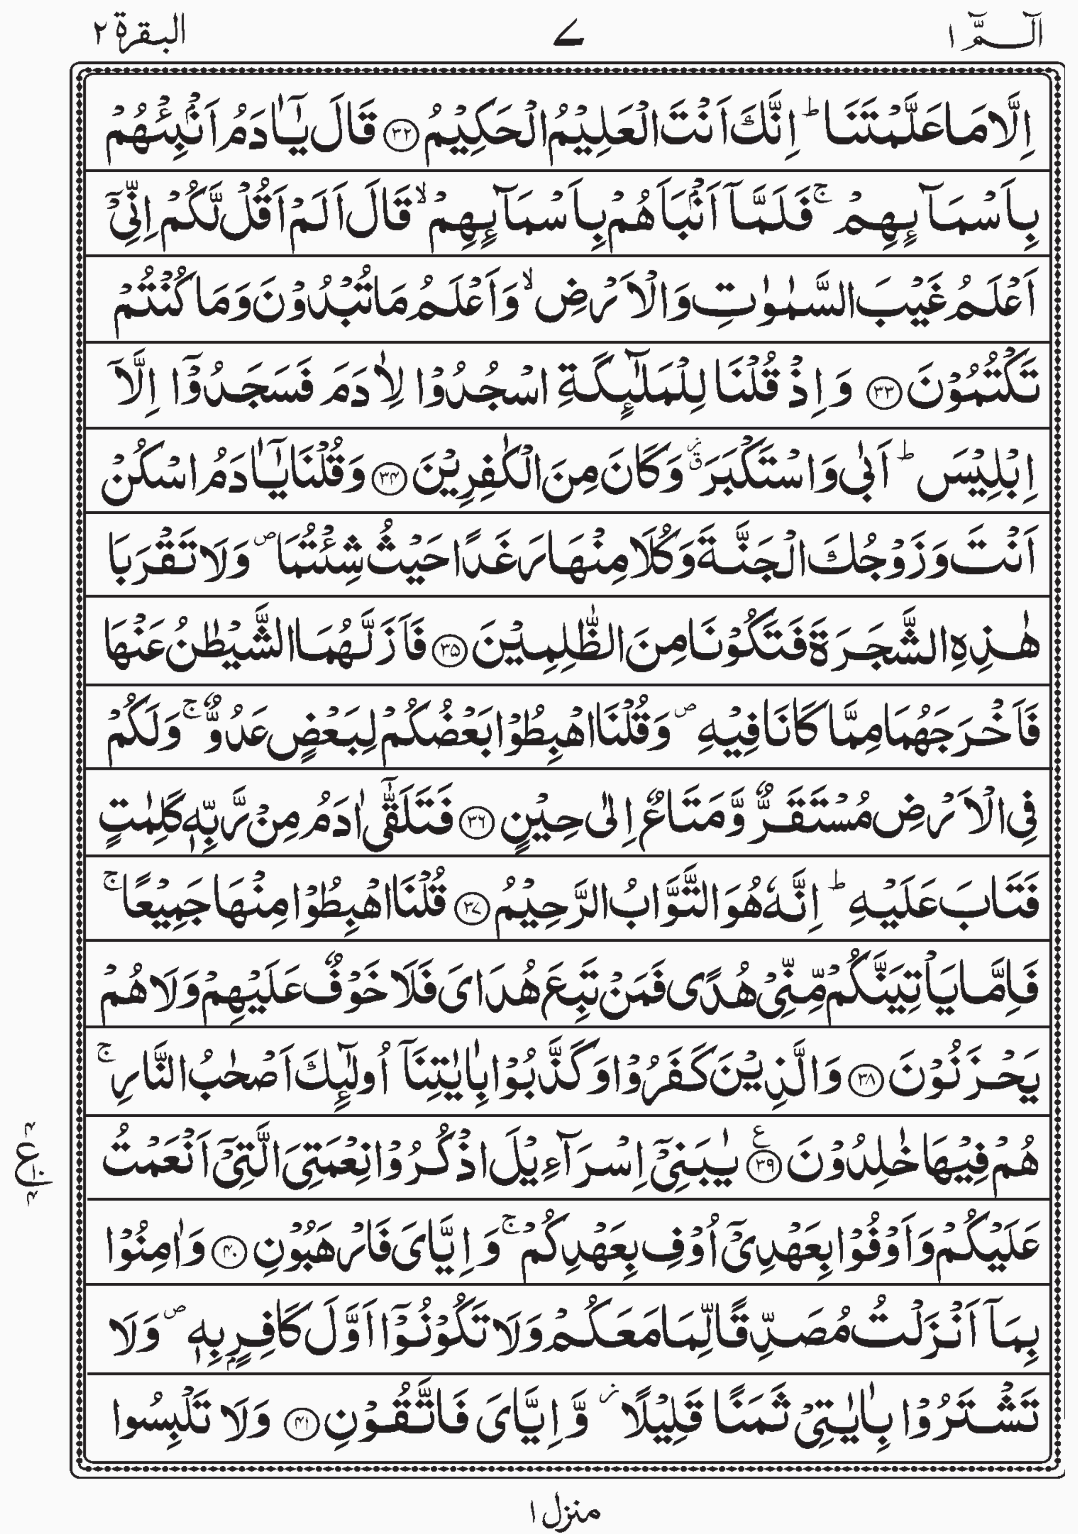 الٓـمّٓ ١ ٧ البقرة ٢
اِلَّا مَا عَلَّمْتَنَا ؕ اِنَّكَ اَنْتَ الْعَلِيْمُ الْحَكِيْمُ ﴿۳۲﴾ قَالَ يٰۤاٰدَمُ اَنْۢبِئْهُمْ
بِاَسْمَآئِهِمْ ۚ فَلَمَّاۤ اَنْۢبَاَهُمْ بِاَسْمَآئِهِمْ ۙ قَالَ اَلَمْ اَقُلْ لَّكُمْ اِنِّىْۤ
اَعْلَمُ غَيْبَ السَّمٰوٰتِ وَالْاَرْضِ ۙ وَاَعْلَمُ مَا تُبْدُوْنَ وَمَا كُنْتُمْ
تَكْتُمُوْنَ ﴿۳۳﴾ وَاِذْ قُلْنَا لِلْمَلٰٓئِكَةِ اسْجُدُوْا لِاٰدَمَ فَسَجَدُوْۤا اِلَّاۤ
اِبْلِيْسَ ؕ اَبٰى وَاسْتَكْبَرَ ۗ٘ وَكَانَ مِنَ الْكٰفِرِيْنَ ﴿۳۴﴾ وَقُلْنَا يٰۤاٰدَمُ اسْكُنْ
اَنْتَ وَزَوْجُكَ الْجَنَّةَ وَكُلَا مِنْهَا رَغَدًا حَيْثُ شِئْتُمَا ۪ وَلَا تَقْرَبَا
هٰذِهِ الشَّجَرَةَ فَتَكُوْنَا مِنَ الظّٰلِمِيْنَ ﴿۳۵﴾ فَاَزَلَّهُمَا الشَّيْطٰنُ عَنْهَا
فَاَخْرَجَهُمَا مِمَّا كَانَا فِيْهِ ۪ وَقُلْنَا اهْبِطُوْا بَعْضُكُمْ لِبَعْضٍ عَدُوٌّ ۚ وَلَكُمْ
فِى الْاَرْضِ مُسْتَقَرٌّ وَّمَتَاعٌ اِلٰى حِيْنٍ ﴿۳۶﴾ فَتَلَقّٰٓى اٰدَمُ مِنْ رَّبِّهٖ كَلِمٰتٍ
فَتَابَ عَلَيْهِ ؕ اِنَّهٗ هُوَ التَّوَّابُ الرَّحِيْمُ ﴿۳۷﴾ قُلْنَا اهْبِطُوْا مِنْهَا جَمِيْعًا ۚ
فَاِمَّا يَاْتِيَنَّكُمْ مِّنِّىْ هُدًى فَمَنْ تَبِعَ هُدَاىَ فَلَا خَوْفٌ عَلَيْهِمْ وَلَا هُمْ
يَحْزَنُوْنَ ﴿۳۸﴾ وَالَّذِيْنَ كَفَرُوْا وَكَذَّبُوْا بِاٰيٰتِنَاۤ اُولٰٓئِكَ اَصْحٰبُ النَّارِ ۚ
هُمْ فِيْهَا خٰلِدُوْنَ ﴿۳۹﴾ ع يٰبَنِىْۤ اِسْرَآءِيْلَ اذْكُرُوْا نِعْمَتِىَ الَّتِىْۤ اَنْعَمْتُ
عَلَيْكُمْ وَاَوْفُوْا بِعَهْدِىْۤ اُوْفِ بِعَهْدِكُمْ ۚ وَاِيَّاىَ فَارْهَبُوْنِ ﴿۴۰﴾ وَاٰمِنُوْا
بِمَاۤ اَنْزَلْتُ مُصَدِّقًا لِّمَا مَعَكُمْ وَلَا تَكُوْنُوْۤا اَوَّلَ كَافِرٍۭ بِهٖ ۪ وَلَا
تَشْتَرُوْا بِاٰيٰتِىْ ثَمَنًا قَلِيْلًا ؗ وَّاِيَّاىَ فَاتَّقُوْنِ ﴿۴۱﴾ وَلَا تَلْبِسُوا
۴ ع ۱۰ ۴
منزل ١